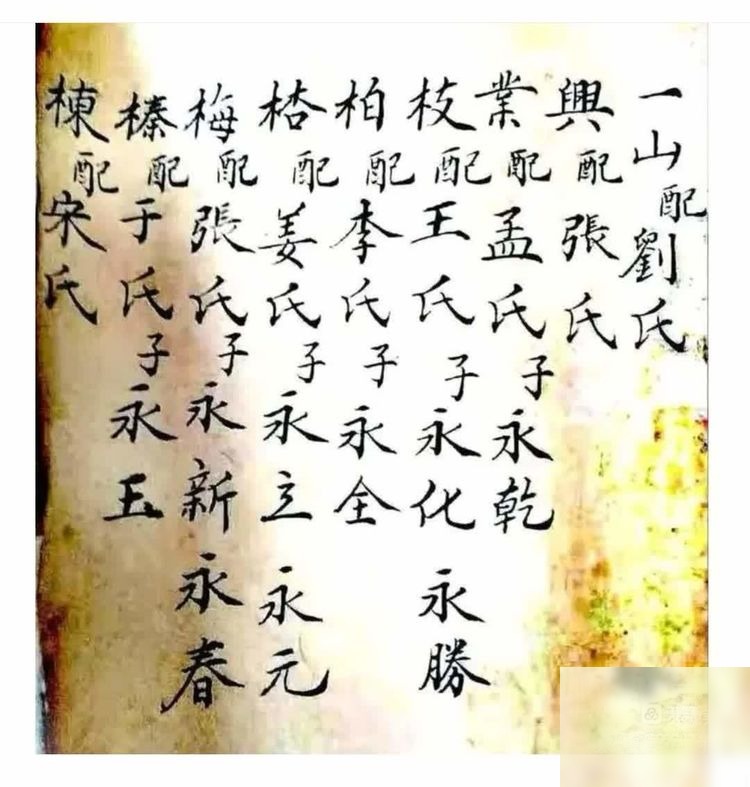 一山配劉氏
興配張氏
業配孟氏子永乾
枝配王氏子永化永勝
柏配李氏子永全
楛配姜氏子永立永元
梅配張氏子永新永春
榛配于氏子永玉
棟配宋氏